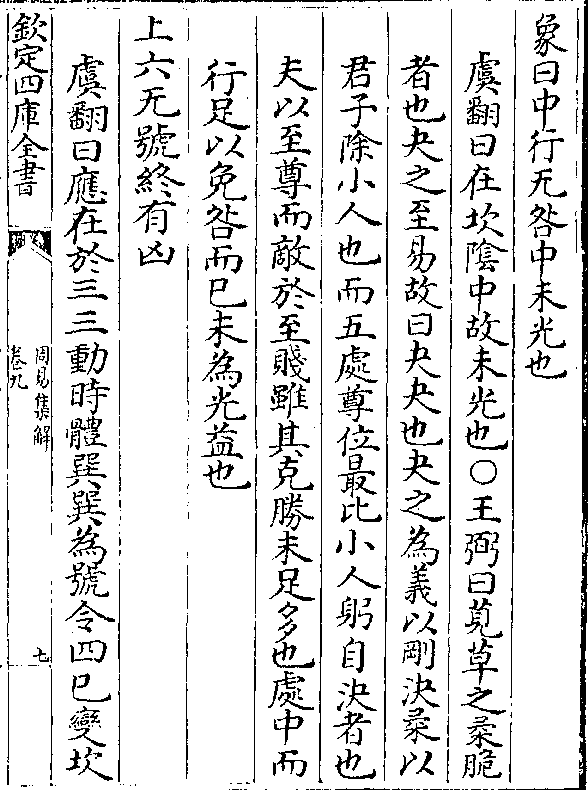 象曰中行无咎中未光也
虞翻曰在坎陰中故未光也○王弼曰莧草之柔脆
者也夬之至易故曰夬夬也夬之為義以剛決柔以
君子除小人也而五處尊位最比小人躬自決者也
夫以至尊而敵於至賤雖其克勝未足多也處中而
行足以免咎而已未為光益也
上六无號終有凶
虞翻曰應在於三三動時體巽巽為號令四已變坎
欽定四庫全書
周易集解
卷九
七